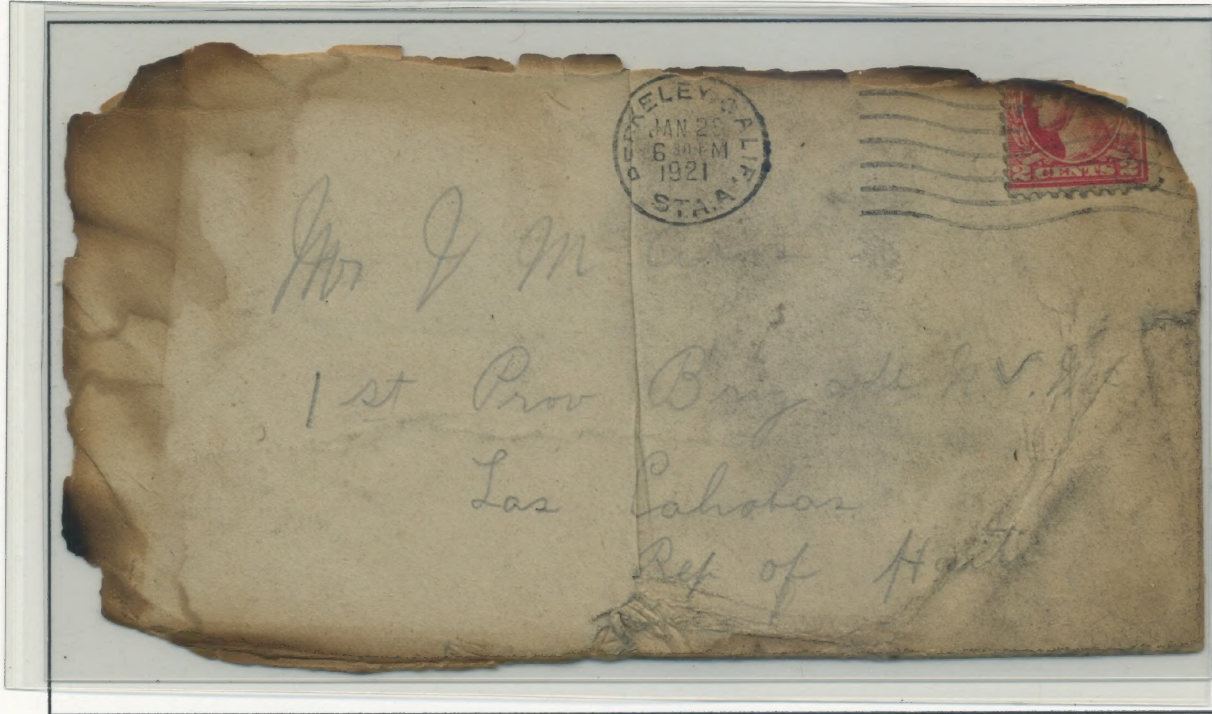 BERKELEY, CALIF.
JAN 2
6 30 PM
1921
STA. A
2 CENTS 2
Mr J M
1st Prov Brigade
Las Cahobas
Rep of Haiti